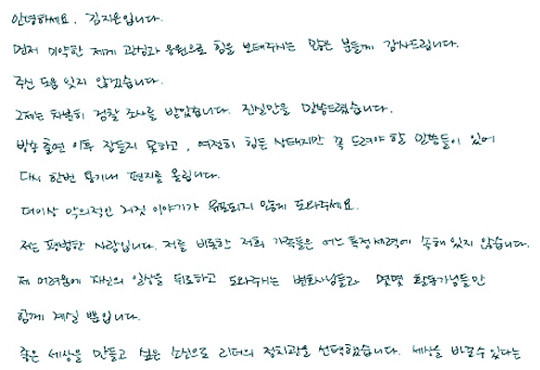 안녕하세요. 김지은입니다.
먼저 미약한 제게 관심과 응원으로 힘을 보태주시는 많은 분들께 감사드립니다.
주신 도움 잊지 않겠습니다.
그제는 차분히 검찰 조사를 받았습니다. 진실만을 말씀드렸습니다.
방송 출연 이후 잠들지 못하고, 여전히 힘든 상태지만 꼭 드려야 할 말씀들이 있어
다시 한번 용기내 편지를 올립니다.
더이상 악의적인 거짓 이야기가 유포되지 않게 도와주세요.
저는 평범한 사람입니다. 저를 비롯한 저희 가족들은 어느 특정 세력에 속해 있지 않습니다.
제 어려움에 자신의 일상을 뒤로하고 도와주시는 변호사님들과 몇몇 활동가님들만
함께 계실 뿐입니다.
좋은 세상을 만들고 싶은 소신으로 리더의 정치관을 선택했습니다. 세상을 바꿀 수 있다는